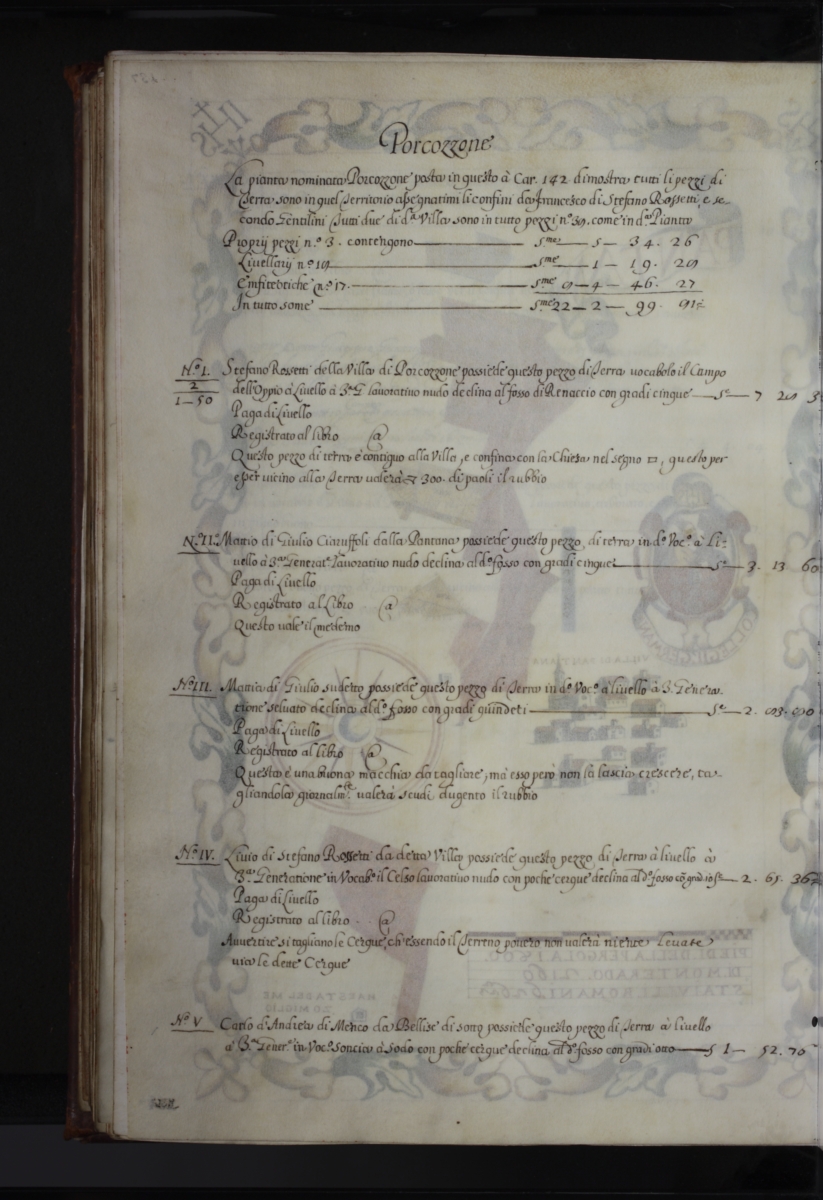 Porcozzone
La pianta nominata Porcozzone posta in questo à Car. 142. dimostra tutti li pezzi di
Terra sono in quel Territorio assegnatimi li confini da Francesco di Stefano Rossetti, e se-
condo Gentilini Tutti due di dᵃ Villa sono in tutto pezzi n.º 39. come in dᵃ Pianta
Proprij pezzi n.º 3. contengono — sᵐᵉ — 5 — 34. 26
Livellarij n.º 19 — sᵐᵉ — 1 — 19. 29
Emfiteotiche n.º 17. — sᵐᵉ 9 — 4 — 46. 27
In tutto some — sᵐᵉ 22 — 2 — 99. 91
N.º I. Stefano Rossetti della Villa di Porcozzone possiede questo pezzo di Terra vocabolo il Campo
2
1 — 50
dell'Oppio à Livello à 3ᵃ G lavorativo nudo declina al fosso di Renaccio con gradi cinque — Sᵉ — 7 29 3
Paga di Livello
Registrato al libro @
Questo pezzo di terra è contiguo alla Villa, e confina con la Chiesa nel segno □, questo per
esser vicino alla Terra valerà 300. di paoli il rubbio
N.º II. Mattio di Giulio Ciaruffoli dalla Pantana possiede questo pezzo di terra in dº Voc.º à Li-
vello à 3ᵃ Generatᵉ lavorativo nudo declina al dº fosso con gradi cinque — Sᵉ — 3. 13 60
Paga di Livello
Registrato al Libro @
Questo vale il medemo
N.º III. Mattia di Giulio sudetto possiede questo pezzo di Terra in dº Voc.º à livello à 3. Genera-
tione selvato declina al dº fosso con gradi quindeti — Sᵉ — 2. 93. 90
Paga di Livello
Registrato al libro @
Questa è una buona macchia da tagliare, mà esso però non la lascia crescere, ta-
gliandola giornalmᵗᵉ valerà scudi dugento il rubbio
N.º IV. Livio di Stefano Rossetti da detta Villa possiede questo pezzo di Terra à livello à
3ᵃ Generatione in Vocabº il Celso lavorativo nudo con poche cerque declina al dº fosso cō gradi Sᵉ — 2. 65. 36
Paga di Livello
Registrato al libro. @
Auvertire si tagliano le Cerque, ch'essendo il Terreno povero non valerà niente Levate
via le dette Cerque
N.º V Carlo d'Andrea di Menco da Bellise di sotto possiede questo pezzo di Terra à livello
à 3ᵃ Genrᵉ in Voc.º Soncia à sodo con poche cerque declina al dº fosso con gradi otto — S 1 — 52. 70